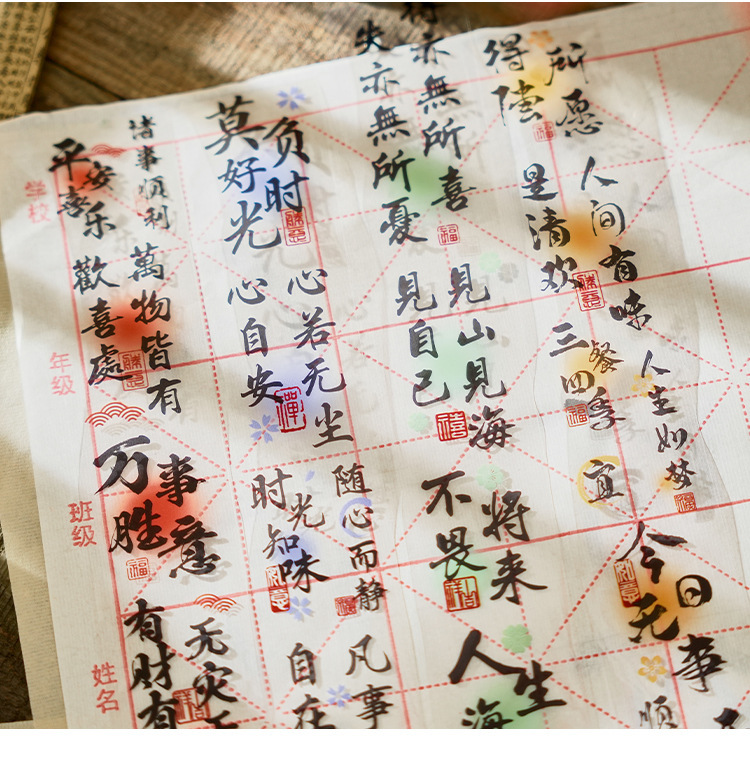 所愿
得偿
人间有味
是清欢
三餐
四季
人生如梦
宜
今日无
事
顺
亦無所喜
失亦無所憂
見山見海
見自己
将来
不畏
人生
海
莫负好时光
心若无尘
心自安
随心而静
时光知味
凡事
自在
诸事順利
平安喜乐
萬物皆有
歡喜處
万事胜意
无灾
有财有
学校
年级
班级
姓名
福
福
福
福
禅
禧